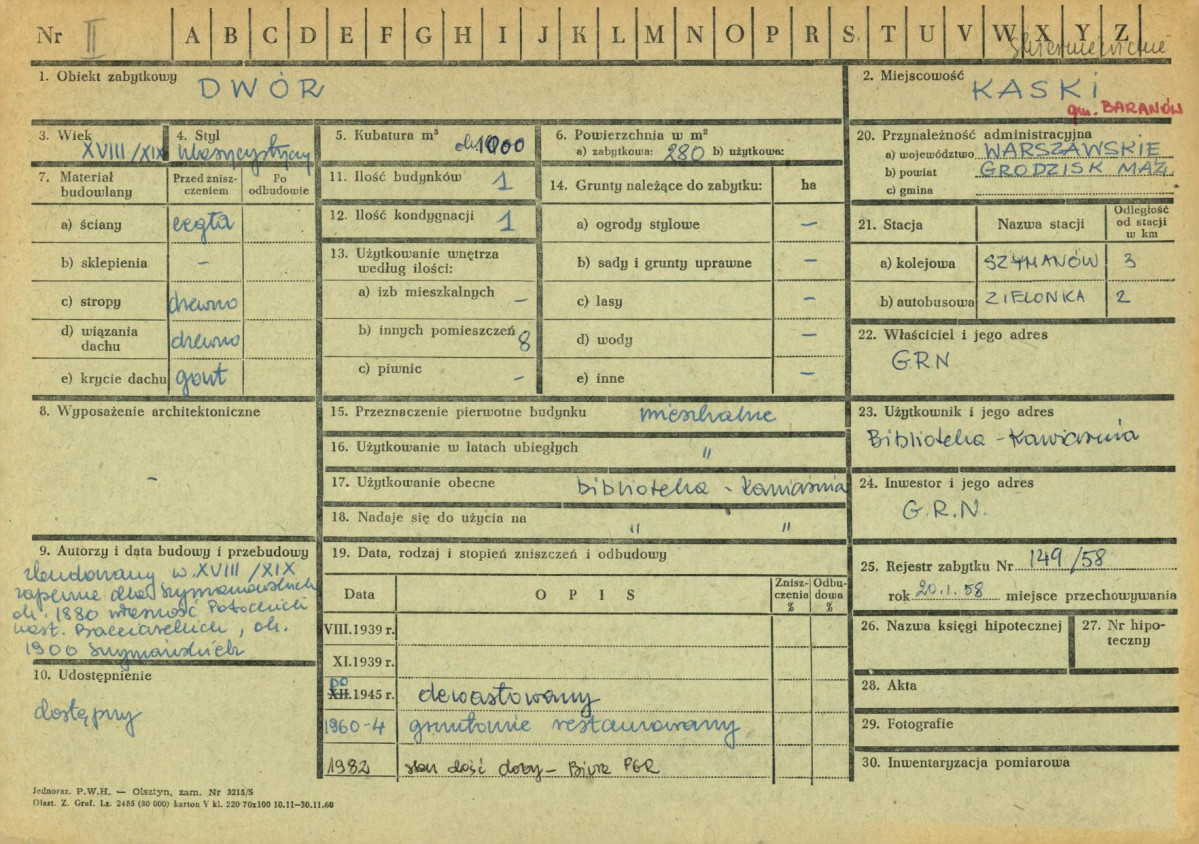 Nr II A B C D E F G H I J K L M N O P R S T U V W X Y Z
Skierniewickie
1. Obiekt zabytkowy DWÓR
2. Miejscowość KASKI
gm. BARANÓW
3. Wiek XVIII/XIX
4. Styl klasycystyczny
5. Kubatura m³ ok 1000
6. Powierzchnia w m²
a) zabytkowa: 280 b) użytkowa:
7. Materiał budowlany
Przed zniszczeniem
Po odbudowie
a) ściany cegła
b) sklepienia –
c) stropy drewno
d) wiązania dachu drewno
e) krycie dachu gont
8. Wyposażenie architektoniczne
–
9. Autorzy i data budowy i przebudowy
zbudowany w XVIII/XIX
zapewne dla Szymanowskich
ok. 1880 własność Potockich
nast. Bacciarellich, ok.
1900 Szymańskich
10. Udostępnienie
dostępny
11. Ilość budynków 1
12. Ilość kondygnacji 1
13. Użytkowanie wnętrza
według ilości:
a) izb mieszkalnych –
b) innych pomieszczeń 8
c) piwnic –
14. Grunty należące do zabytku: ha
a) ogrody stylowe –
b) sady i grunty uprawne –
c) lasy –
d) wody –
e) inne –
15. Przeznaczenie pierwotne budynku mieszkalne
16. Użytkowanie w latach ubiegłych "
17. Użytkowanie obecne biblioteka - kawiarnia
18. Nadaje się do użycia na " "
19. Data, rodzaj i stopień zniszczeń i odbudowy
Data OPIS Zniszczenia % Odbudowa %
VIII.1939 r.
XI.1939 r.
DO
XII.1945 r. dewastowany
1960-4 gruntownie restaurowany
1982 stan dość dobry - Biura PGR
20. Przynależność administracyjna
a) województwo WARSZAWSKIE
b) powiat GRODZISK MAZ.
c) gmina
21. Stacja Nazwa stacji Odległość od stacji w km
a) kolejowa SZYMANÓW 3
b) autobusowa ZIELONKA 2
22. Właściciel i jego adres
GRN
23. Użytkownik i jego adres
Biblioteka - Kawiarnia
24. Inwestor i jego adres
G.R.N.
25. Rejestr zabytku Nr 149/58
rok 20.1.58 miejsce przechowywania
26. Nazwa księgi hipotecznej
27. Nr hipoteczny
28. Akta
29. Fotografie
30. Inwentaryzacja pomiarowa
Jednoraz. P.W.H. — Olsztyn, zam. Nr 3215/S
Olszt. Z. Graf. Lz. 2455 (30 000) karton V kl. 220 70x100 10.11–30.11.60